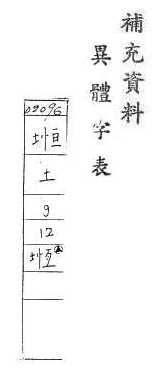 補充資料
異體字表
02096
𡍷
土
9
12